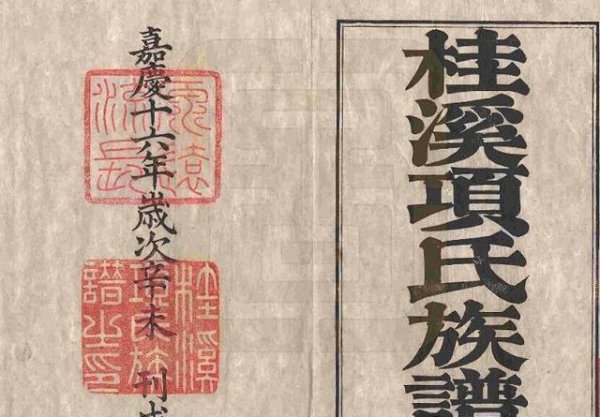 桂溪項氏族譜
嘉慶十六年歲次辛未 刊
遠
流長
桂溪
項氏族
譜之印